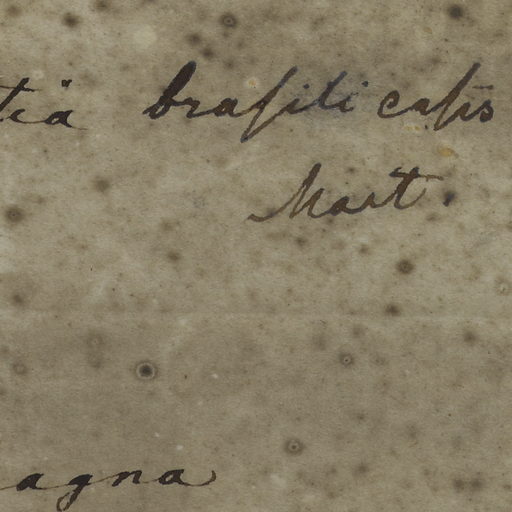 tia braſilicaſis
Mart.
agna